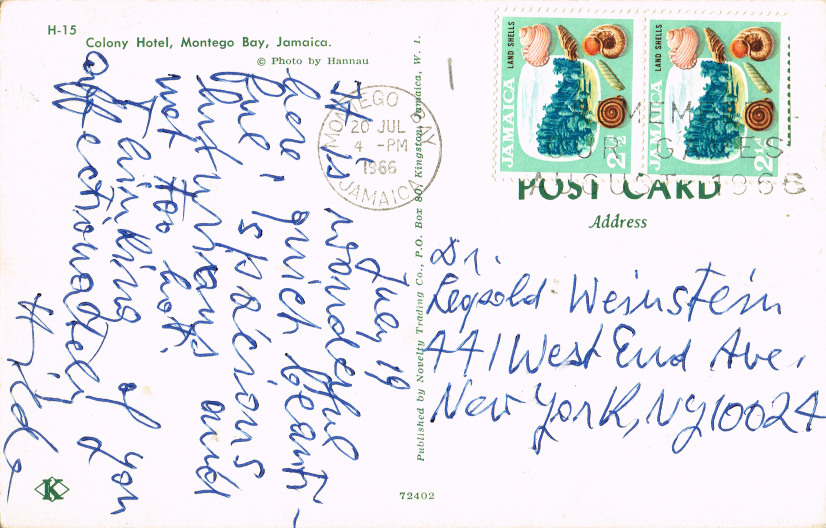 H-15
Colony Hotel, Montego Bay, Jamaica.
© Photo by Hannau
July 19
It is wonderful
here, quiet beauti-
ful, spacious
luxurious and
not too hot.
Thinking of you
affectionately
Hilde
K
Published by Novelty Trading Co., P.O. Box 80, Kingston, Jamaica, W. I.
72402
MONTEGO BAY
20 JUL
4 -PM
1966
JAMAICA
JAMAICA
LAND SHELLS
2½
JAMAICA
LAND SHELLS
2½
AUGUST 1966
POST CARD
Address
Dr.
Leopold Weinstein
441 West End Ave.
New York, NY 10024